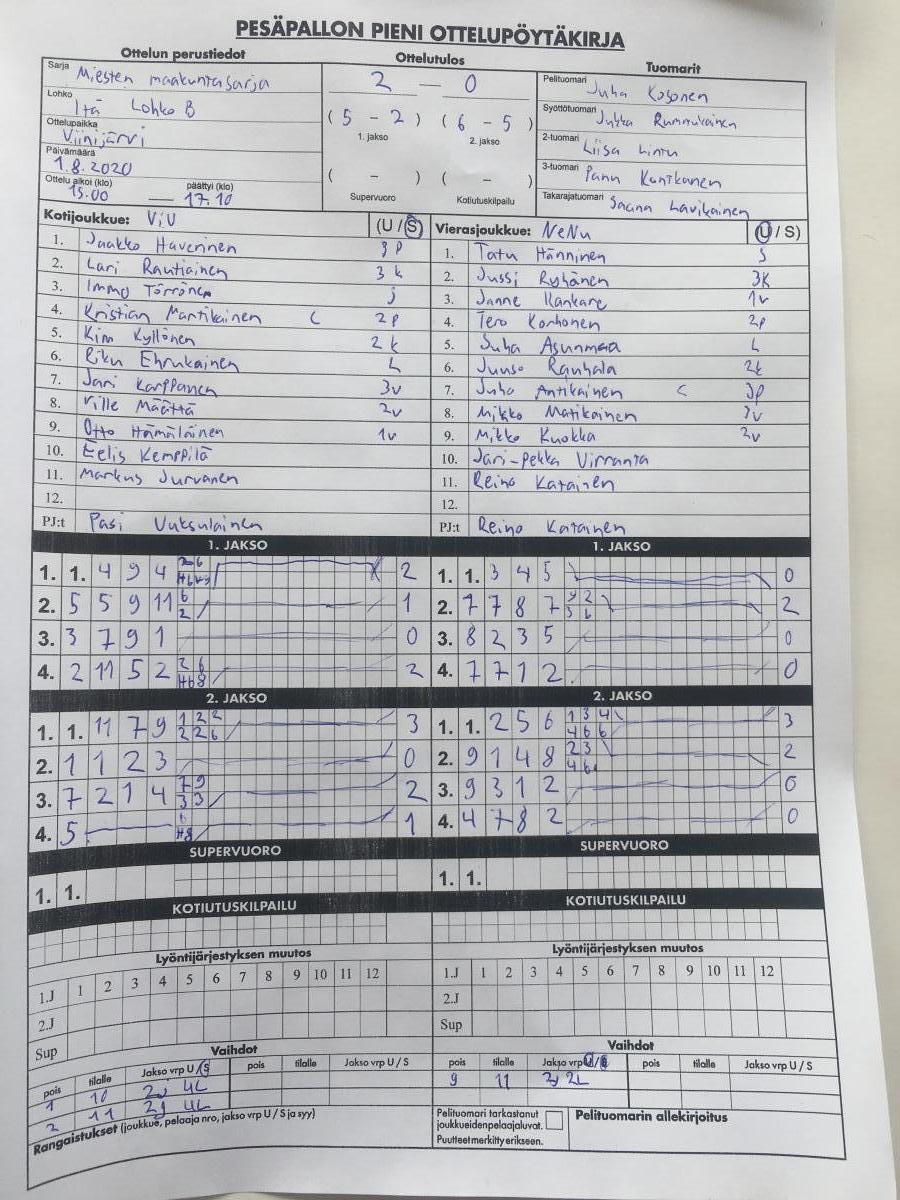 PESÄPALLON PIENI OTTELUPÖYTÄKIRJA
Ottelun perustiedot
Sarja Miesten maakuntasarja
Lohko Itä Lohko B
Ottelupaikka Viinijärvi
Päivämäärä 1.8.2020
Ottelu alkoi (klo) 15.00 — päättyi (klo) 17.10
Ottelutulos
2 — 0
(5 - 2) (6 - 5)
1. jakso 2. jakso
( - ) ( - )
Supervuoro Kotiutuskilpailu
Tuomarit
Pelituomari Juha Kosonen
Syöttötuomari Jukka
2-tuomari Liisa Lintu
3-tuomari Panu Kontkanen
Takarajatuomari Jaana Lavikainen
Kotijoukkue: ViU (U / S)
1. Jaakko Haverinen 3p
2. Lari Rautiainen 3k
3. Immo Törrönen j
4. Kristian Martikainen C 2p
5. Kim Kyllönen 2k
6. Riku L
7. Jari Karppanen 3v
8. Ville Määttä 2v
9. Otto Hämäläinen 1v
10. Eelis Kemppilä
11. Markus Jurvanen
12.
PJ:t Pasi Vuksulainen
Vierasjoukkue: NeNu (U / S)
1. Tatu Hänninen S
2. Jussi Ryhänen 3K
3. Janne Kankare 1v
4. Tero Korhonen 2p
5. Juha Asunmaa L
6. Juuso Rauhala 2k
7. Juha Antikainen C 3p
8. Mikko Matikainen 3v
9. Mikko Kuokka 2v
10. Jari-Pekka Virranta
11. Reino Katainen
12.
PJ:t Reino Katainen
1. JAKSO
1. 1. 4 9 4 2
2. 5 5 9 11 6 2 1
3. 3 7 9 1 0
4. 2 11 5 2 2 6 H68 2
1. JAKSO
1. 1. 3 4 5 0
2. 7 7 8 7 9 2 3 6 2
3. 8 2 3 5 0
4. 7 7 1 2 0
2. JAKSO
1. 1. 11 7 9 1 2 2 2 2 6 3
2. 1 1 2 3 0
3. 7 2 1 4 7 9 3 3 2
4. 5 6 H8 1
2. JAKSO
1. 1. 2 5 6 1 3 4 4 6 6 3
2. 9 1 4 8 2 3 4 6 2
3. 9 3 1 2 0
4. 4 7 8 2 0
SUPERVUORO
1. 1.
SUPERVUORO
1. 1.
KOTIUTUSKILPAILU
KOTIUTUSKILPAILU
Lyöntijärjestyksen muutos
1.J 1 2 3 4 5 6 7 8 9 10 11 12
2.J
Sup
Lyöntijärjestyksen muutos
1.J 1 2 3 4 5 6 7 8 9 10 11 12
2.J
Sup
Vaihdot
pois tilalle Jakso vrp U / S pois tilalle Jakso vrp U / S
1 10 2j 4L
2 11 2j 4L
Vaihdot
pois tilalle Jakso vrp U / S pois tilalle Jakso vrp U / S
9 11 2j 2L
Rangaistukset (joukkue, pelaaja nro, jakso vrp U / S ja syy)
Pelituomari tarkastanut
joukkueidenpelaajaluvat.
Puutteet merkitty erikseen.
Pelituomarin allekirjoitus